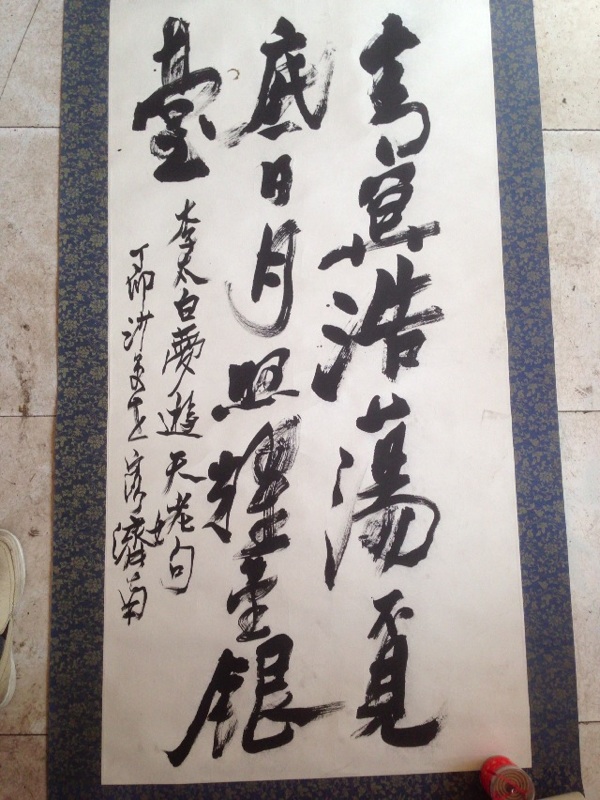 青冥浩蕩不見
底日月照耀金銀
臺
李太白夢遊天姥句
丁卯沙更世濟南